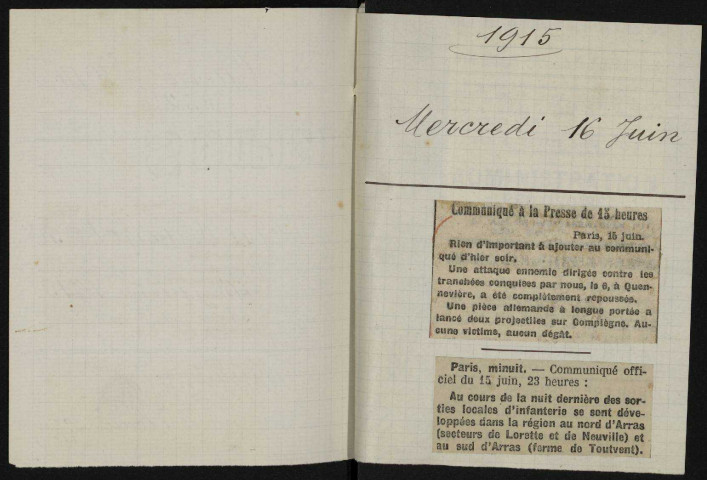 1915
Mercredi 16 Juin
Communiqué à la Presse de 15 heures
Paris, 15 juin.
Rien d'important à ajouter au communi-
qué d'hier soir.
Une attaque ennemie dirigée contre les
tranchées conquises par nous, le 6, à Quen-
nevière, a été complètement repoussée.
Une pièce allemande à longue portée a
lancé deux projectiles sur Compiègne. Au-
cune victime, aucun dégât.
Paris, minuit. — Communiqué offi-
ciel du 15 juin, 23 heures :
Au cours de la nuit dernière des sor-
ties locales d'infanterie se sont déve-
loppées dans la région au nord d'Arras
(secteurs de Lorette et de Neuville) et
au sud d'Arras (ferme de Toutvent).